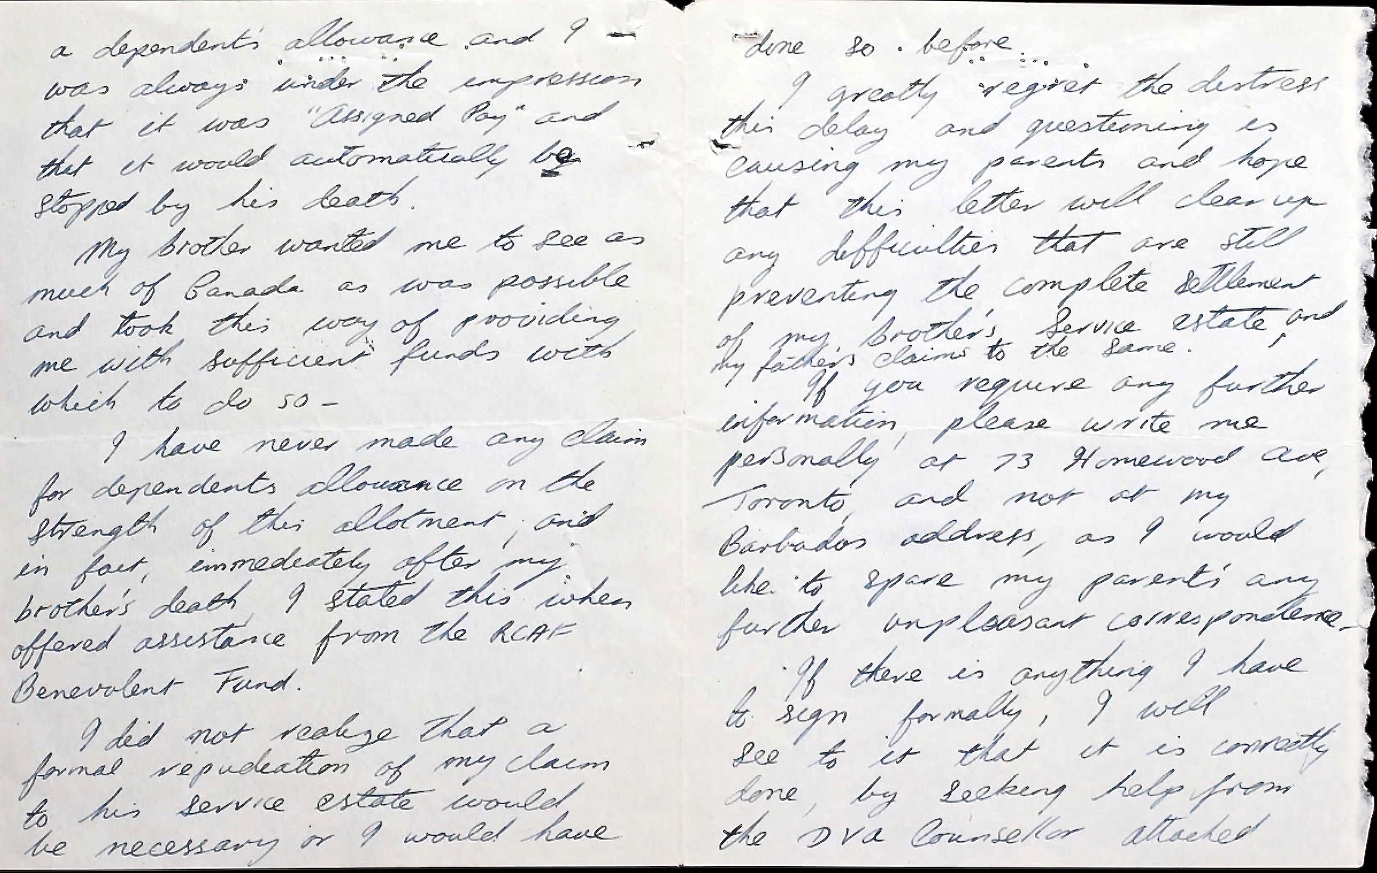 a dependent's allowance and I
was always under the impression
that it was "Assigned Pay" and
that it would automatically be
stopped by his death.
My brother wanted me to see as
much of Canada as was possible
and took this way of providing
me with sufficient funds with
which to do so -
I have never made any claim
for dependents allowance on the
strength of this allotment, and
in fact, immediately after my
brother's death, I stated this when
offered assistance from the RCAF
Benevolent Fund.
I did not realize that a
formal repudiation of my claim
to his service estate would
be necessary or I would have
done so before.
I greatly regret the distress
this delay and questioning is
causing my parents and hope
that this letter will clear up
any difficulties that are still
preventing the complete settlement
of my brother's Service estate, and
my father's claims to the same.
If you require any further
information, please write me
personally at 73 Homewood Ave,
Toronto, and not at my
Barbados address, as I would
like to spare my parents any
further unpleasant correspondence -
If there is anything I have
to sign formally, I will
see to it that it is correctly
done, by seeking help from
the DVA Counsellor attached